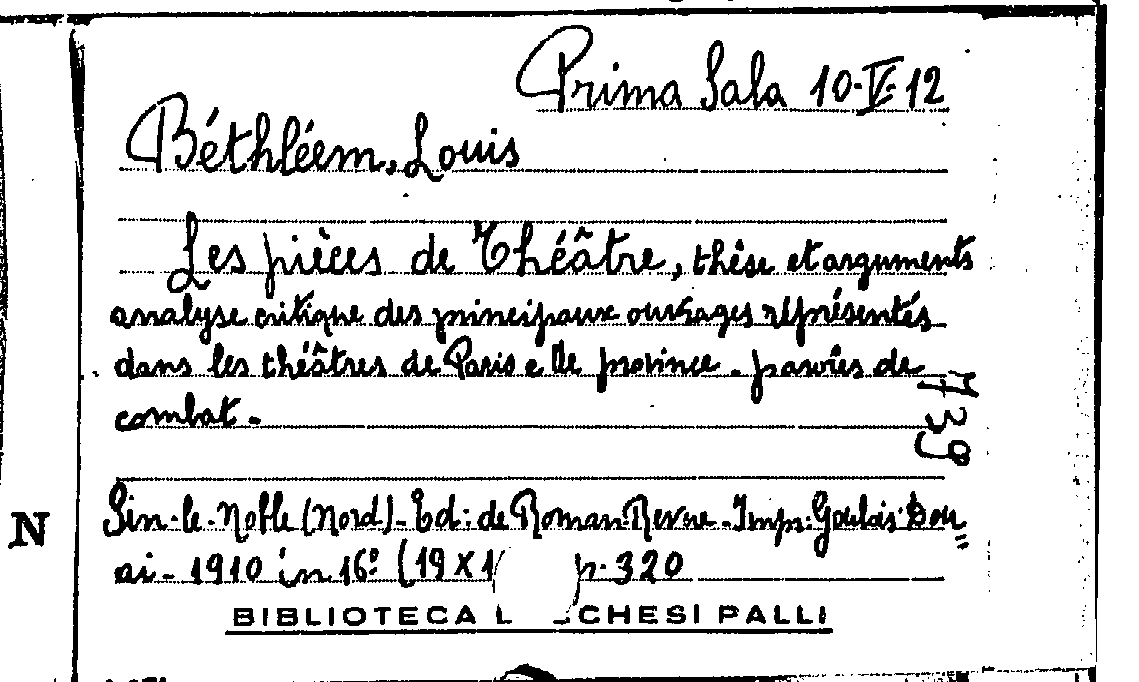 Prima Sala 10-V-12
Béthléem, Louis
Les pièces de Théâtre, thèse et arguments
analyse critique des principaux ouvrages représentés
dans les théâtres de Paris e de province - paroles de
combat -
739
Sin-le-Noble (Nord) - Ed: de Roman-Revue - Imp: Goulois Dou=
ai - 1910 in 16º (19 X 1 p. 320
N
BIBLIOTECA L CHESI PALLI